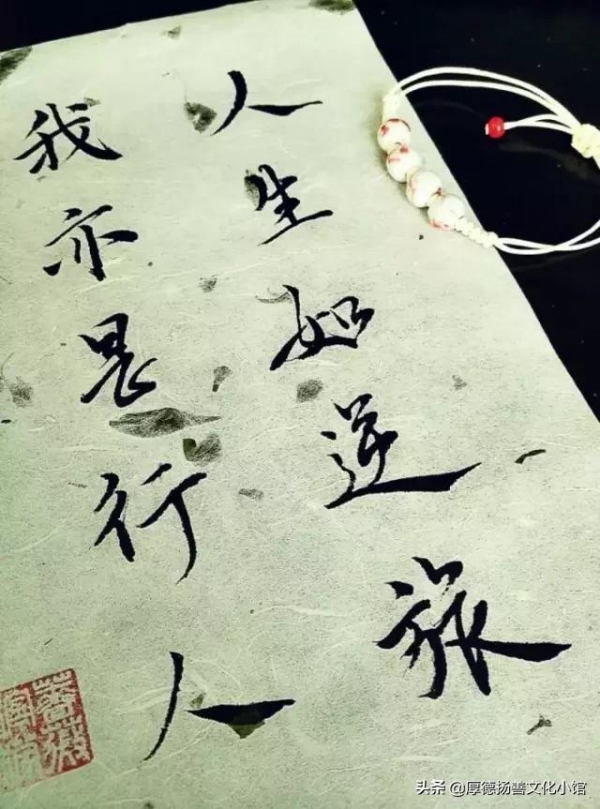 人生如逆旅
我亦是行人
头条 @厚德扬善文化小馆